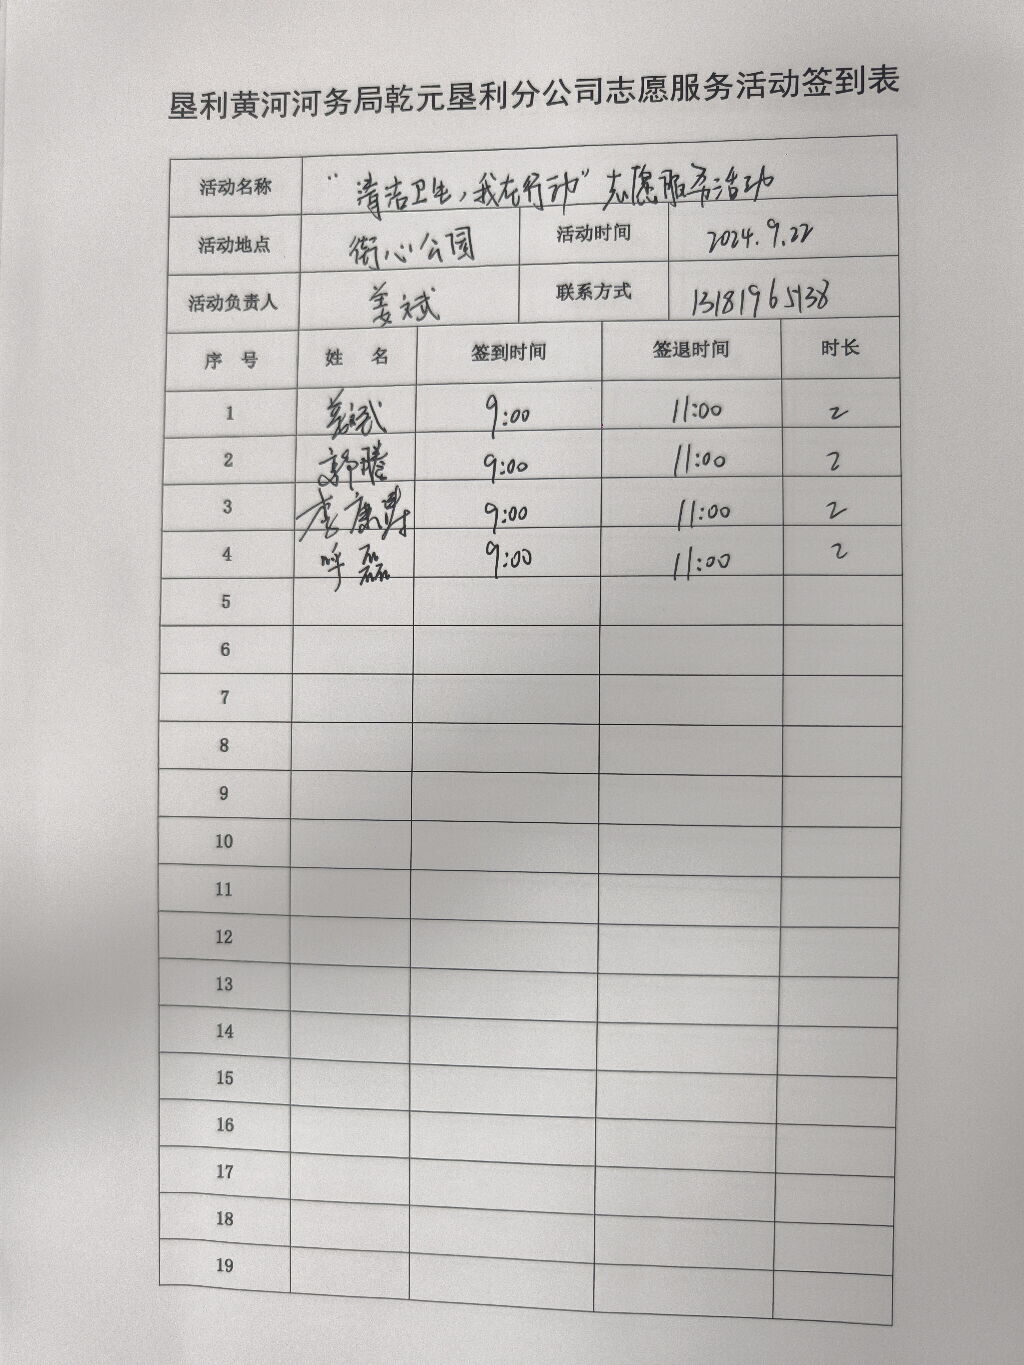 垦利黄河河务局乾元垦利分公司志愿服务活动签到表
活动名称 “清洁卫生，我在行动”志愿服务活动
活动地点 街心公园 活动时间 2024.9.22
活动负责人 姜斌 联系方式 13181965138
序 号 姓 名 签到时间 签退时间 时长
1 姜斌 9:00 11:00 2
2 郭腾 9:00 11:00 2
3 李康 9:00 11:00 2
4 呼磊 9:00 11:00 2
5
6
7
8
9
10
11
12
13
14
15
16
17
18
19